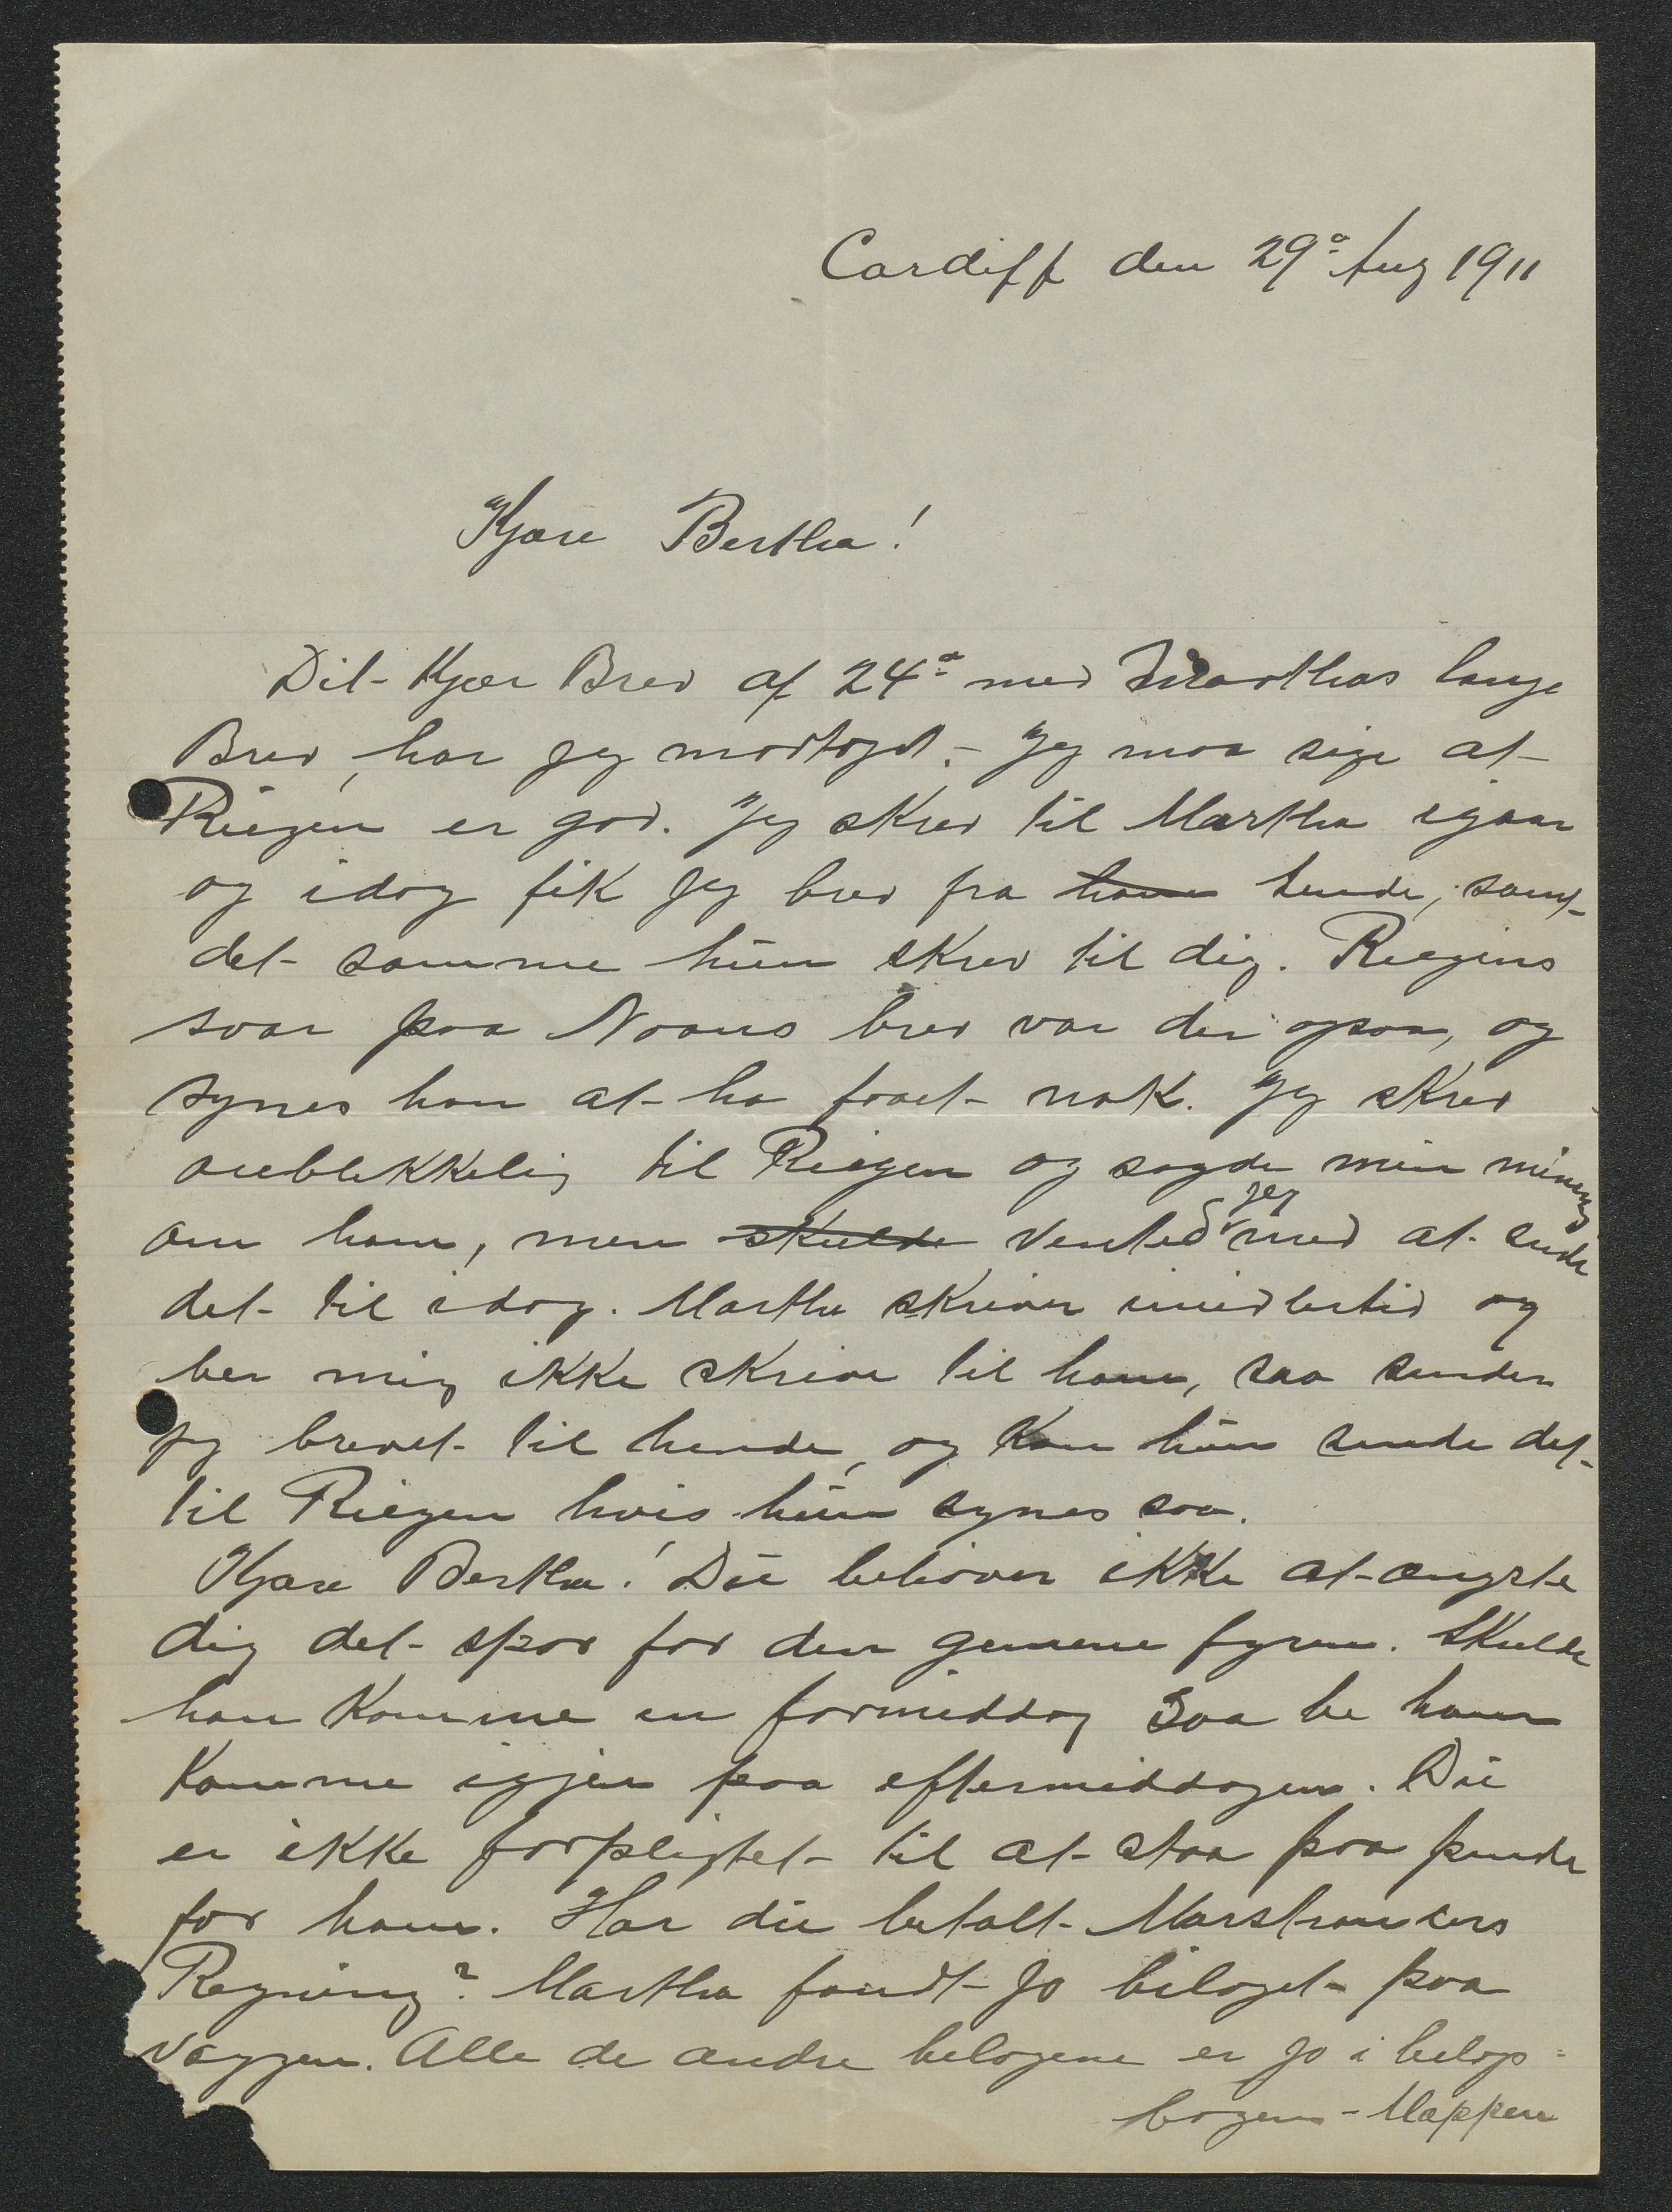 Cardiff den 29º Aug 1911
Kjære Bertha!
Dit Kjær Brev af 24º med Marthas lange
Brev, har jeg modtaget. - Jeg maa sige at
Riegen er god. Jeg skrev til Martha igaar
og idag fik jeg brev fra ham hende, samt
det samme hun skrev til dig. Riegens
svar paa Noans brev var der ogsaa, og
synes han at ha faaet nok. Jeg skrev
øieblikkelig til Riegen og sagde min mening
om ham, men skulde vented jeg med at sende
det til idag. Martha skriver imidlertid og
ber mig ikke skrive til ham, saa sender
jeg brevet til hende, og kan hun sende det
til Riegen hvis hun synes saa.
Kjære Bertha! Du behøver ikke at ængste
dig det spor for den gemene fyren. Skulde
han komme en formiddag saa be ham
komme igjen paa eftermiddagen. Du
er ikke forpligtet til at staa paa pinde
for ham. Har du betalt Marstranders
Regning? Martha fandt jo bilaget paa
væggen. Alle de andre belagene er jo i belags=
bogens-Mappen